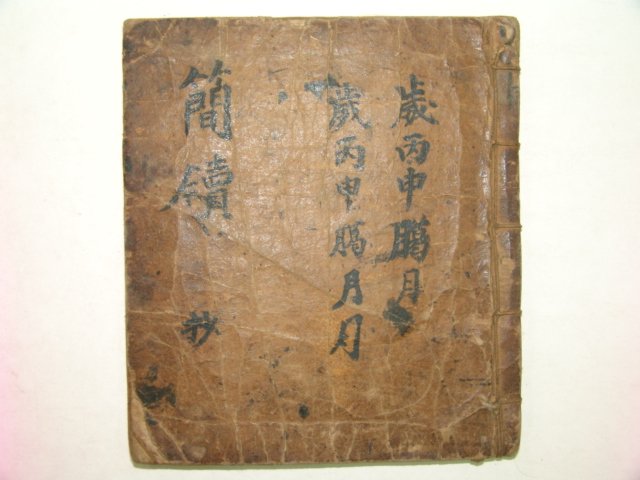 歲丙申臈月
歲丙申臈月月
簡牘
抄